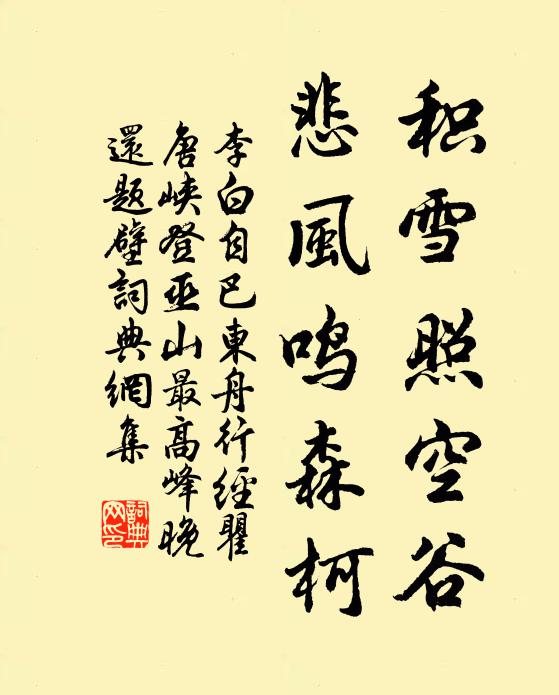 积雪照空谷
悲風鸣森柯
李白自巴東舟行經瞿
唐峡登巫山最高峰晚
還题壁詞典網集
詞典
网印